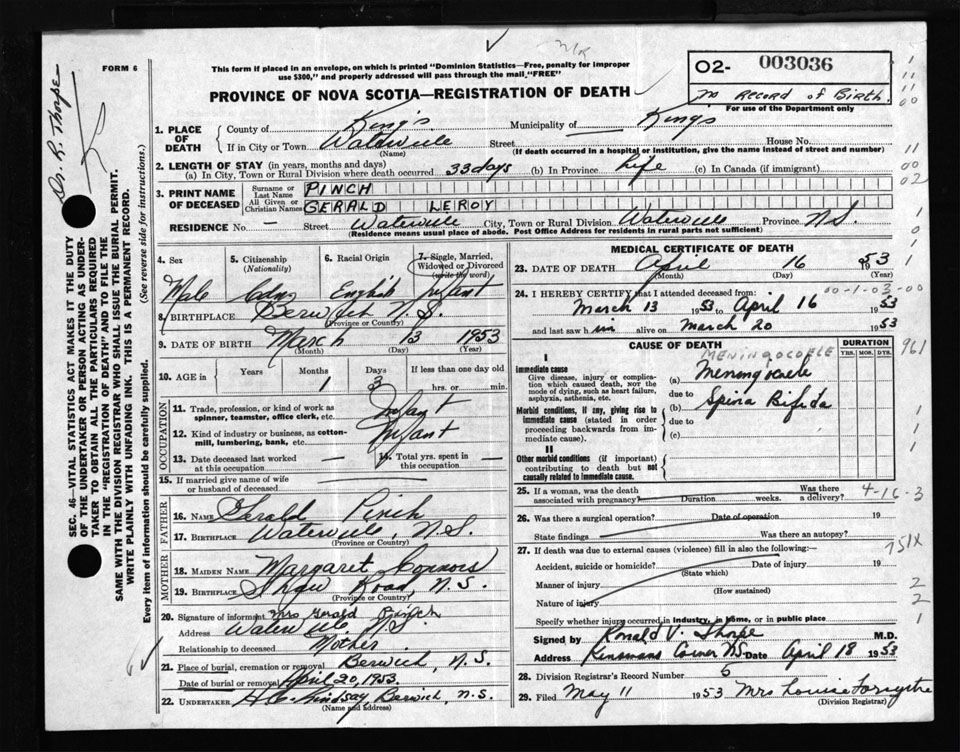 FORM 6
This form if placed in an envelope, on which is printed "Dominion Statistics—Free, penalty for improper
use $300," and properly addressed will pass through the mail "FREE"
PROVINCE OF NOVA SCOTIA—REGISTRATION OF DEATH
02- 003036
No Record of Birth.
For use of the Department only
Dr. R. Thorpe
SEC. 46—VITAL STATISTICS ACT MAKES IT THE DUTY
OF THE UNDERTAKER OR PERSON ACTING AS UNDER-
TAKER TO OBTAIN ALL THE PARTICULARS REQUIRED
IN THE "REGISTRATION OF DEATH" AND TO FILE THE
SAME WITH THE DIVISION REGISTRAR WHO SHALL ISSUE THE BURIAL PERMIT.
WRITE PLAINLY WITH UNFADING INK. THIS IS A PERMANENT RECORD.
Every item of information should be carefully supplied. (See reverse side for instructions.)
1. PLACE OF DEATH
County of King's Municipality of Kings
If in City or Town Waterville Street House No.
(Name) (If death occurred in a hospital or institution, give the name instead of street and number)
2. LENGTH OF STAY (in years, months and days)
(a) In City, Town or Rural Division where death occurred 33 days (b) In Province Life (c) In Canada (if immigrant)
3. PRINT NAME OF DECEASED
Surname or Last Name PINCH
All Given or Christian Names GERALD LEROY
RESIDENCE No. — Street Waterville City, Town or Rural Division Waterville Province N.S.
(Residence means usual place of abode. Post Office Address for residents in rural parts not sufficient)
4. Sex 5. Citizenship (Nationality) 6. Racial Origin 7. Single, Married, Widowed or Divorced (write the word)
Male Cdn English Infant
8. BIRTHPLACE Berwick N.S.
(Province or Country)
9. DATE OF BIRTH March 13 1953
(Month) (Day) (Year)
10. AGE in Years Months Days If less than one day old
1 3 hrs. or min.
OCCUPATION
11. Trade, profession, or kind of work as spinner, teamster, office clerk, etc. Infant
12. Kind of industry or business, as cotton-mill, lumbering, bank, etc. Infant
13. Date deceased last worked at this occupation — 14. Total yrs. spent in this occupation —
15. If married give name of wife or husband of deceased
FATHER
16. NAME Gerald Pinch
17. BIRTHPLACE Waterville, N.S.
(Province or Country)
MOTHER
18. MAIDEN NAME Margaret Connors
19. BIRTHPLACE Road, N.S.
(Province or Country)
20. Signature of informant Mrs Gerald Pinch
Address Waterville N.S.
Relationship to deceased Mother
21. Place of burial, cremation or removal Berwick, N.S.
Date of burial or removal April 20, 1953.
22. UNDERTAKER Lindsay Berwick, N.S.
(Name and address)
MEDICAL CERTIFICATE OF DEATH
23. DATE OF DEATH April 16 1953
(Month) (Day) (Year)
00-1-03-00
24. I HEREBY CERTIFY that I attended deceased from:
March 13 1953 to April 16 1953
and last saw h im alive on March 20 1953
CAUSE OF DEATH DURATION
YRS. MOS. DYS.
MENINGOCOELE
961
I
Immediate cause
Give disease, injury or complication which caused death, not the mode of dying, such as heart failure, asphyxia, asthenia, etc.
(a) Meningocoele
due to
Morbid conditions, if any, giving rise to immediate cause (stated in order proceeding backwards from immediate cause).
(b) Spina Bifida
due to
(c)
II
Other morbid conditions (if important) contributing to death but not causally related to immediate cause.
25. If a woman, was the death associated with pregnancy? Duration weeks. Was there a delivery?
4-16-3
26. Was there a surgical operation? Date of operation 19
State findings Was there an autopsy?
751X
27. If death was due to external causes (violence) fill in also the following:—
Accident, suicide or homicide? Date of injury 19
(State which)
Manner of injury
(How sustained)
Nature of injury
Specify whether injury occurred in industry, in home, or in public place
Signed by Ronald V. Thorpe M.D.
Address Kinsmans Corner N.S. Date April 18 1953
28. Division Registrar's Record Number 5
29. Filed May 11 1953 Mrs Louise Forsythe
(Division Registrar)